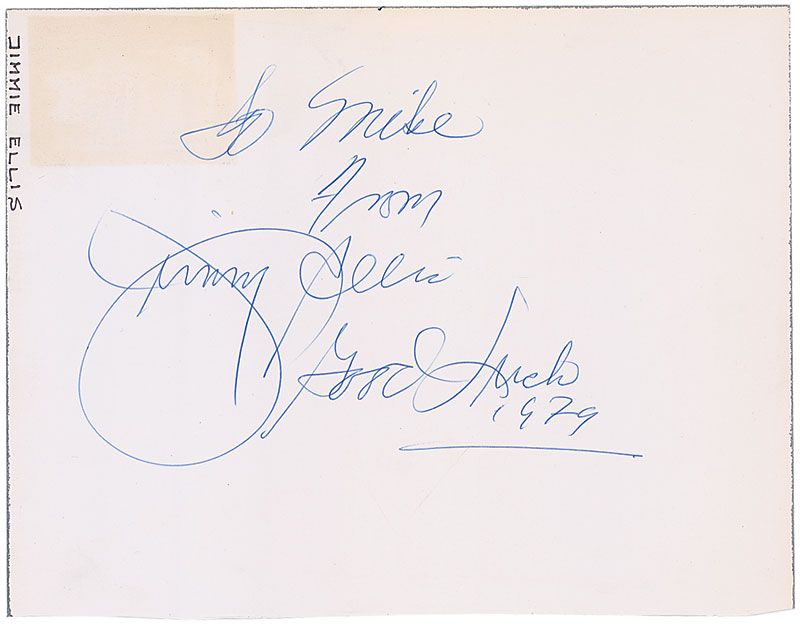 JIMMIE ELLIS
To Mike
From
Jimmy Ellis
Good Luck
1979